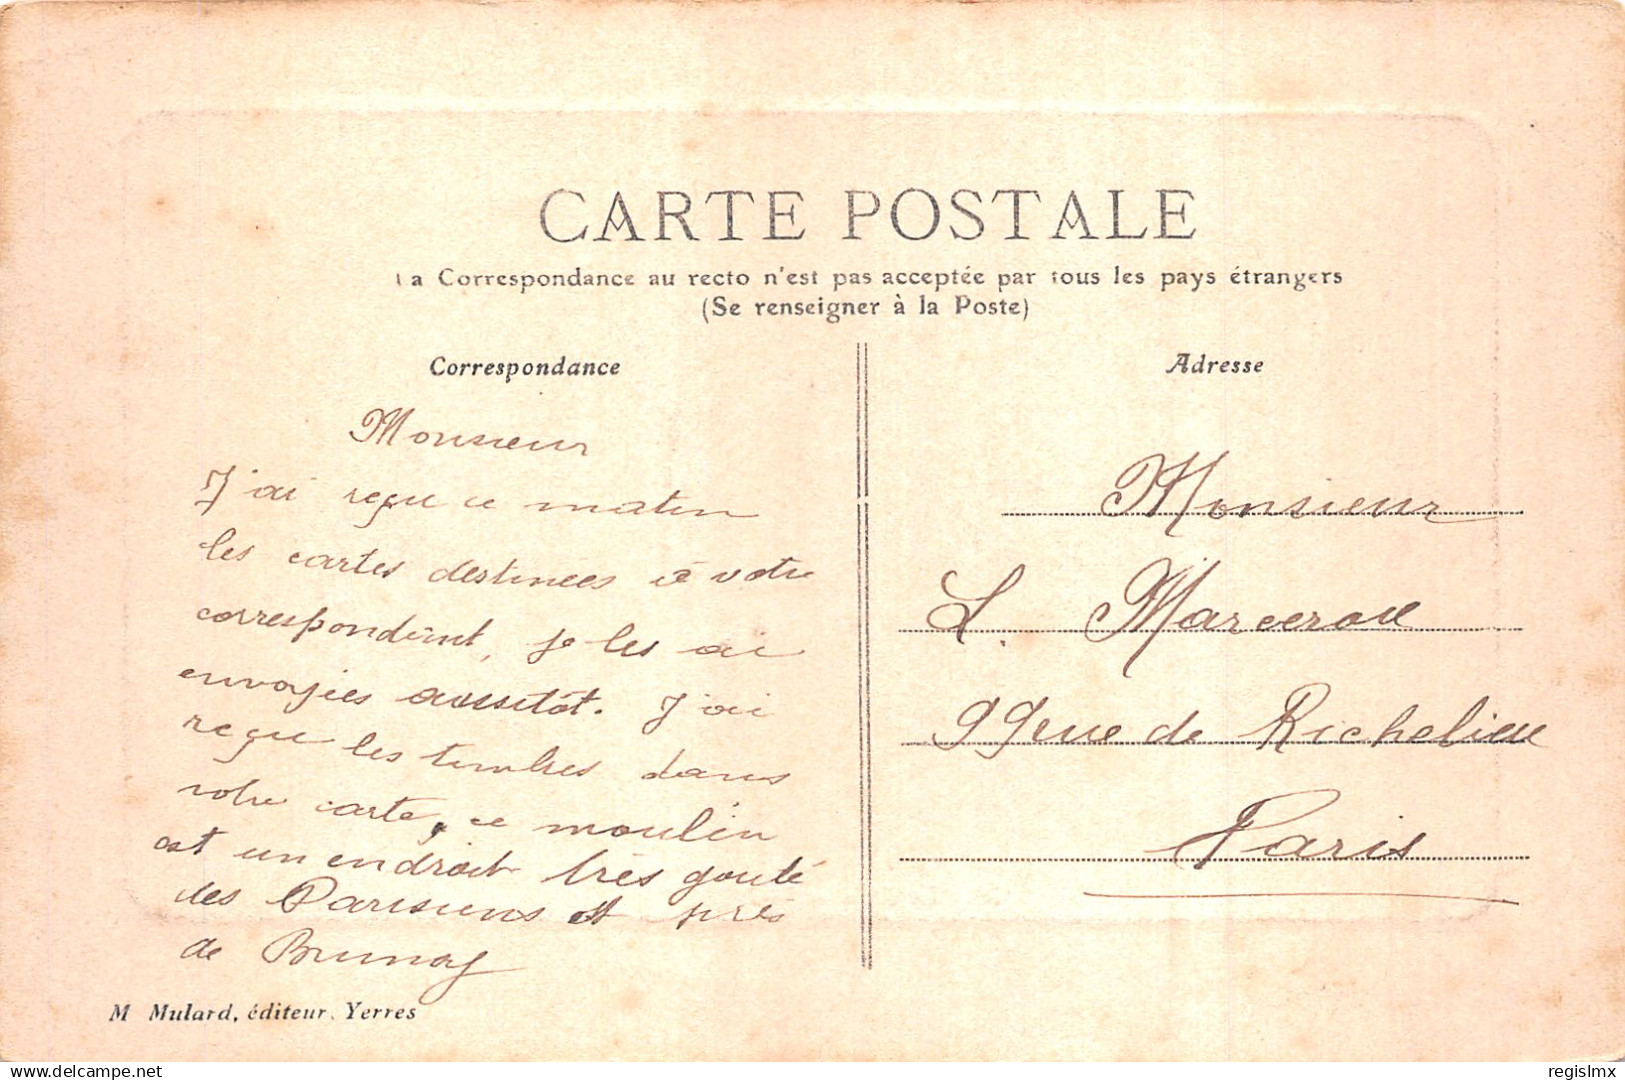 CARTE POSTALE
La Correspondance au recto n'est pas acceptée par tous les pays étrangers
(Se renseigner à la Poste)
Correspondance
Monsieur
J'ai reçu ce matin
les cartes destinées à votre
correspondant, je les ai
envoyées aussitôt. J'ai
reçu les timbres dans
votre carte, ce moulin
est un endroit très gouté
des Parisiens et près
de Brunoy
M Mulard, éditeur, Yerres
Adresse
Monsieur
L. Marcerou
99 rue de Richelieu
Paris
regislmx